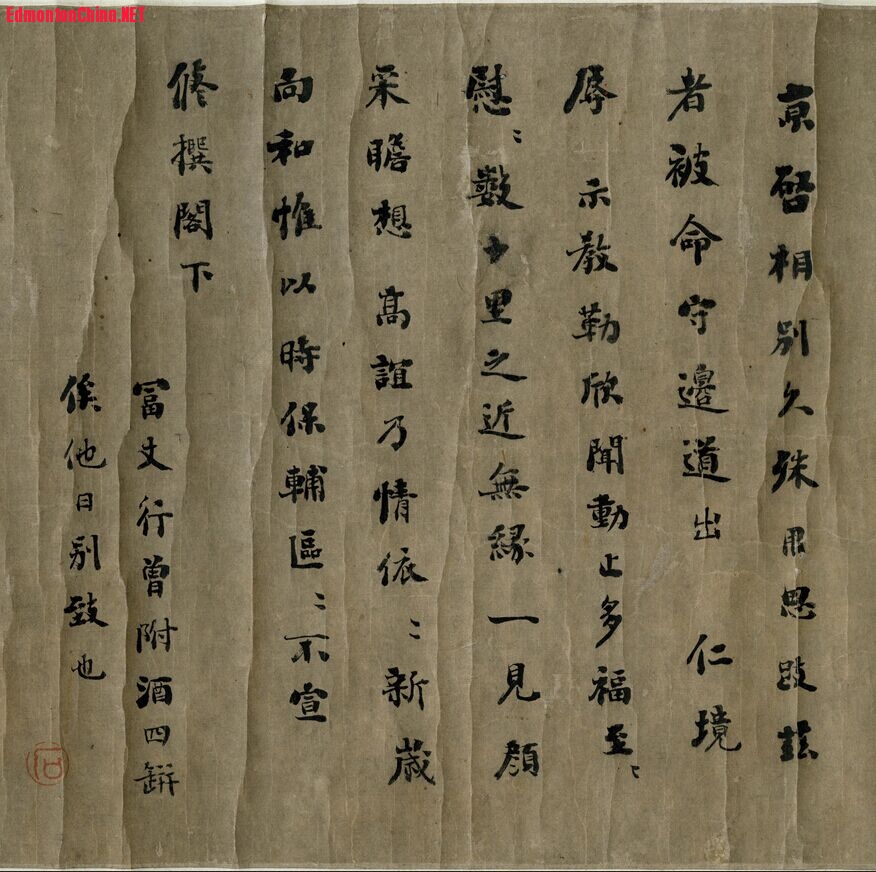 EdmontonChina.NET
京啓相别久殊用思跂兹
者被命守邊道出 仁境
辱 示教勤欣聞動止多福至〻
慰〻數十里之近無緣一見顔
采瞻想 高誼乃情依〻新歲
向和惟以時保輔區〻不宣
脩撰閣下
冨丈行曾附酒四缾
俟他日别致也
石